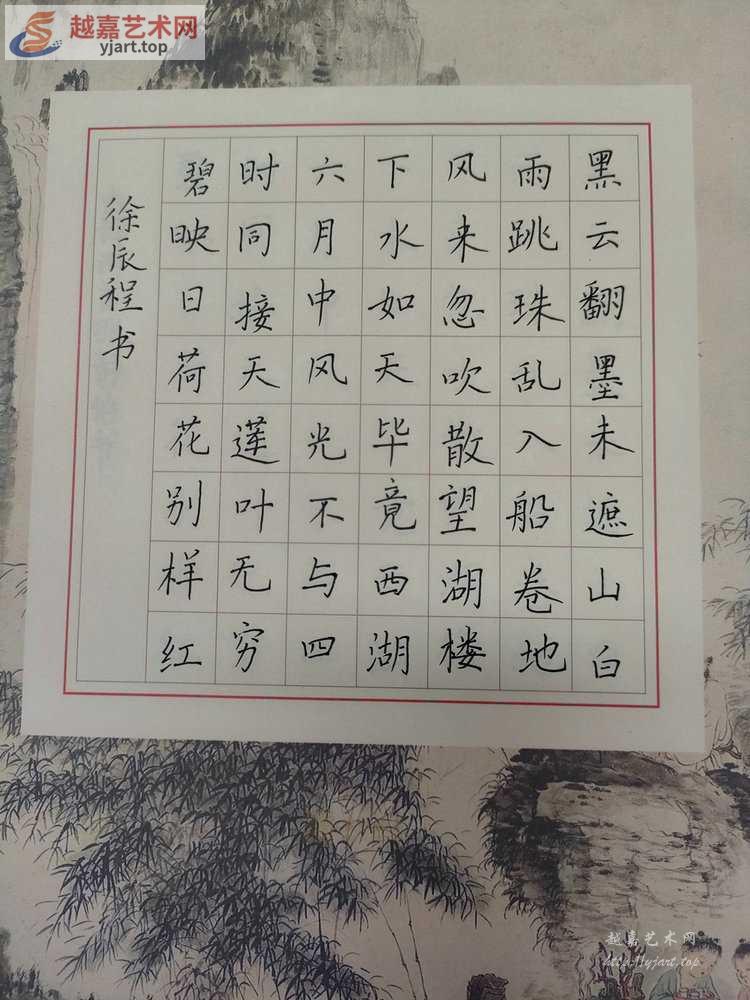 越嘉艺术网
yjart.top
黑云翻墨未遮山白
雨跳珠乱入船卷地
风来忽吹散望湖楼
下水如天毕竟西湖
六月中风光不与四
时同接天莲叶无穷
碧映日荷花别样红
徐辰程书
越嘉艺术网
http://yjart.top